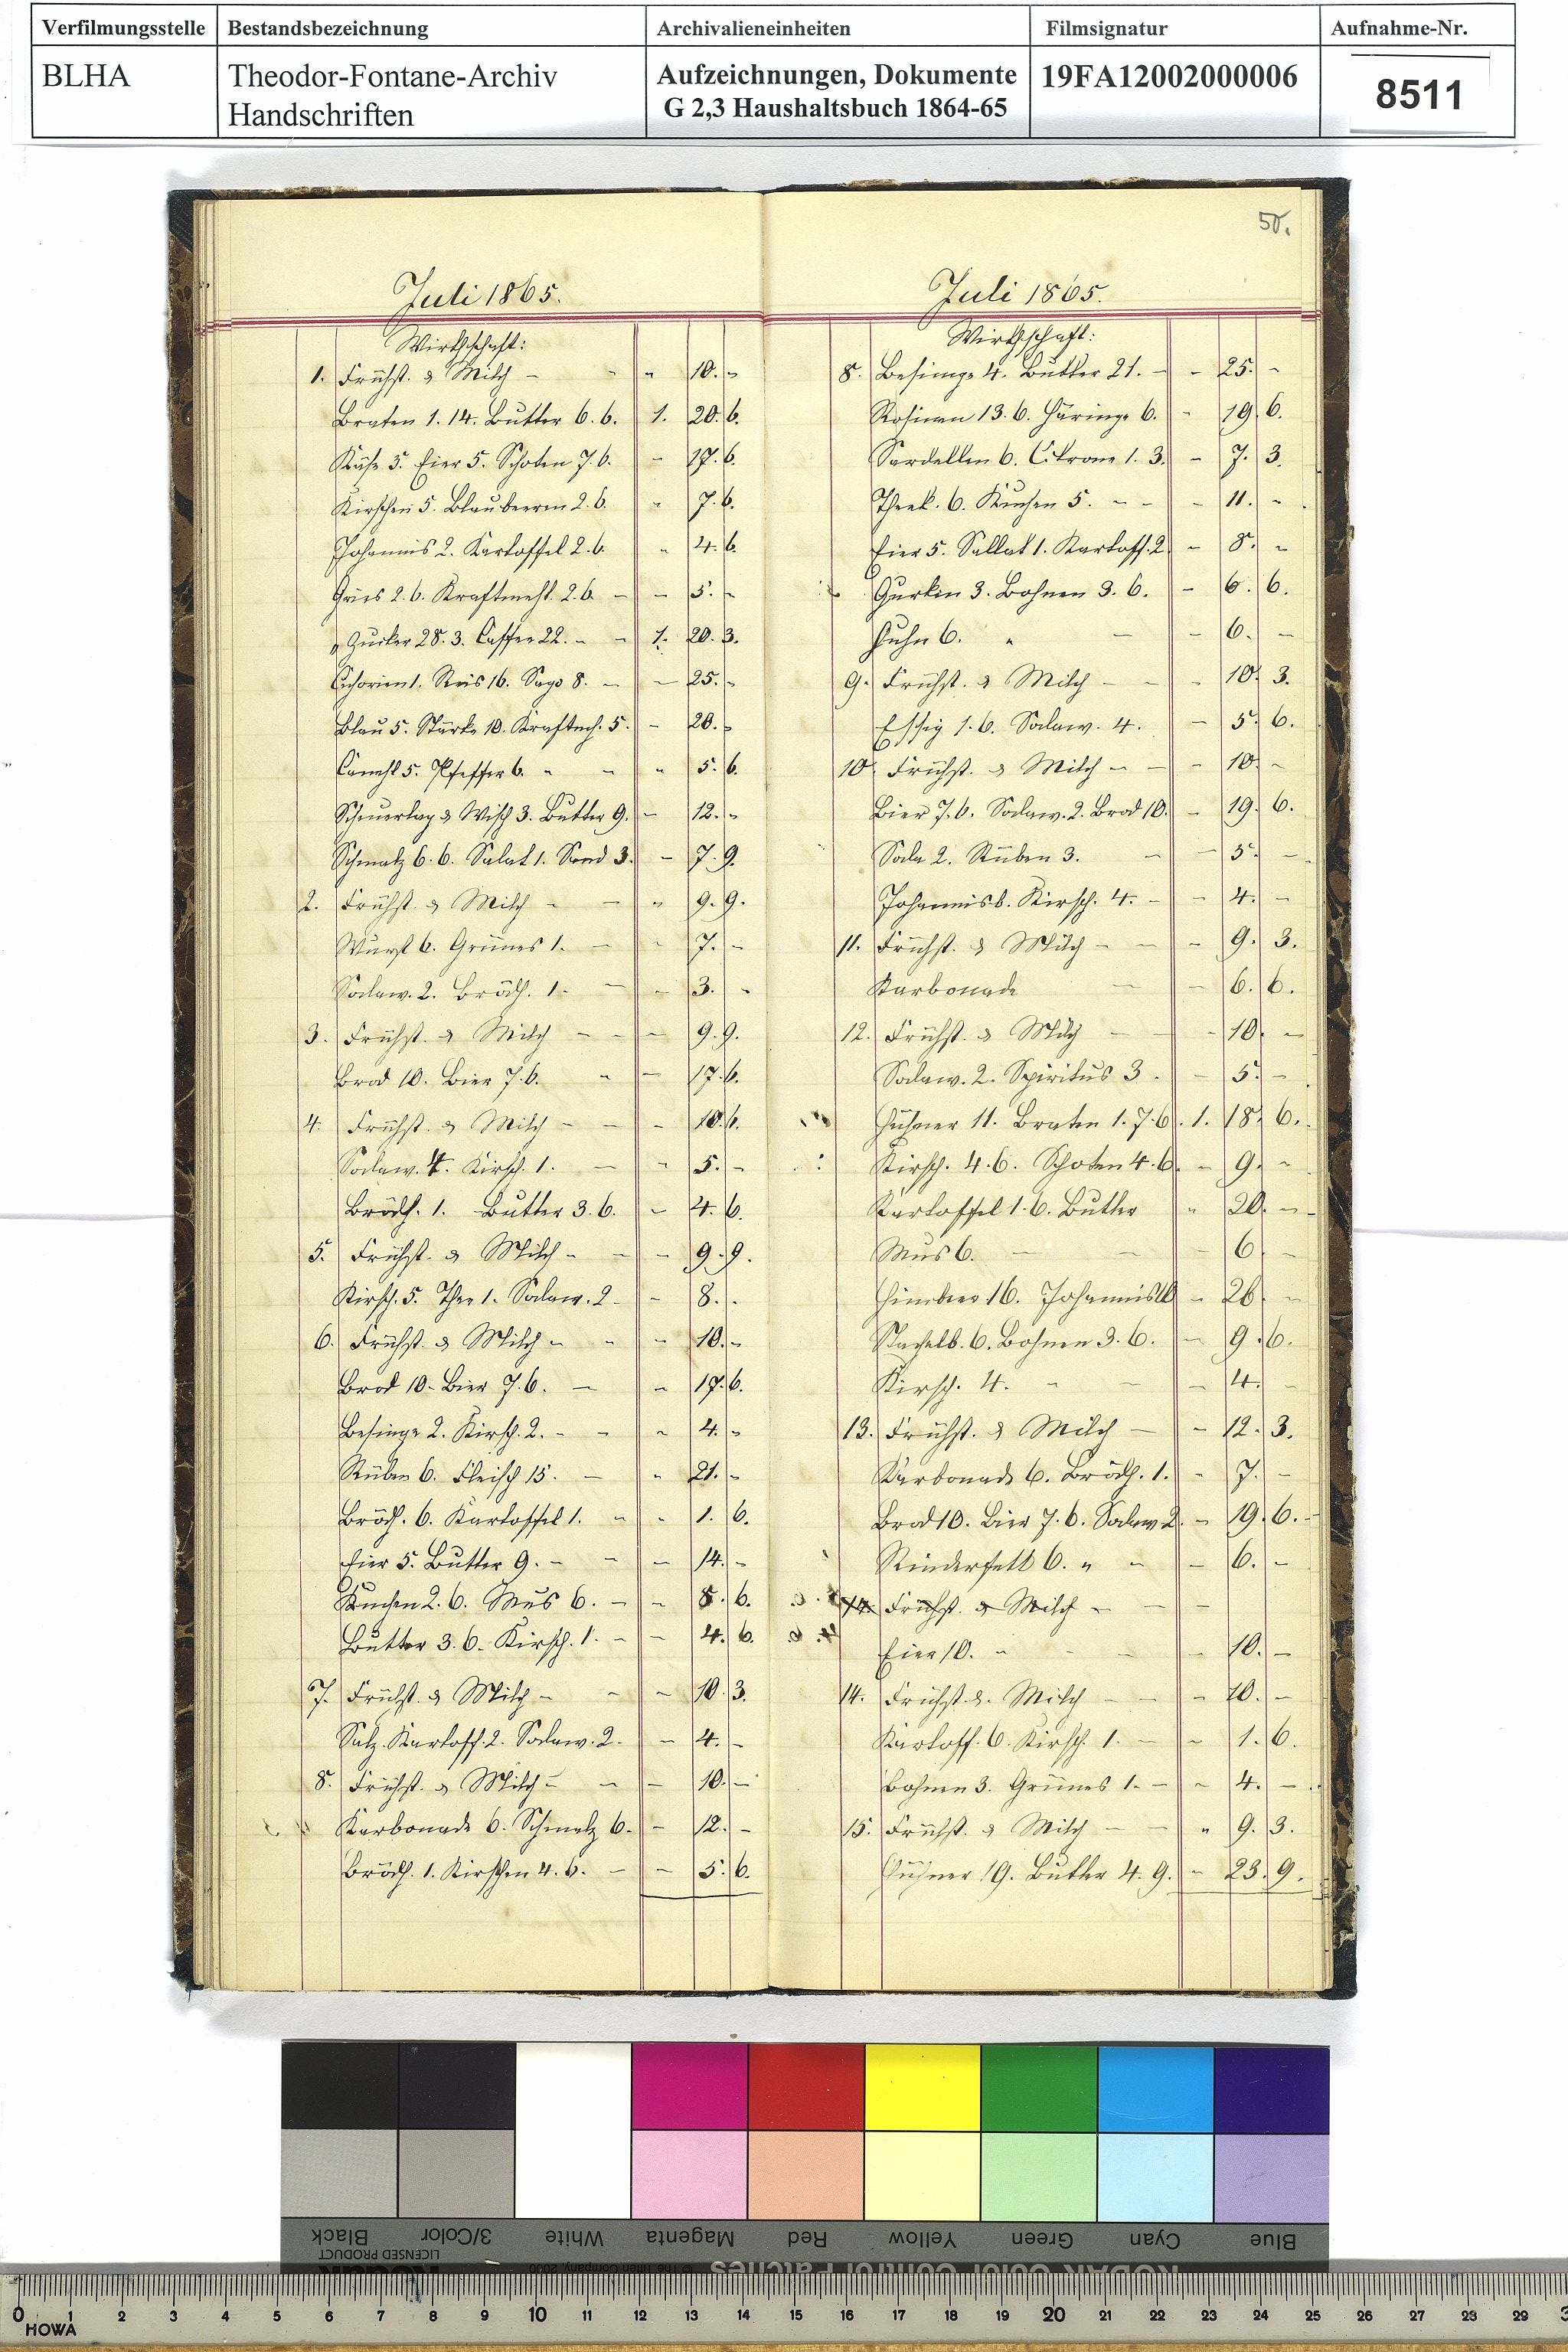 Verfilmungsstelle Bestandsbezeichnung Archivalieneinheiten Filmsignatur Aufnahme-Nr.
BLHA Theodor-Fontane-Archiv Aufzeichnungen, Dokumente 19FA12002000006 8511
Handschriften G 2,3 Haushaltsbuch 1864-65
50.
Juli 1865.
Wirthschaft:
1. Frühst. & Milch - - " 10. -
Braten 1. 14. Butter 6. 6. 1. 20. 6.
Käse 5. Eier 5. Schoten 7. 6. - 17. 6.
Kirschen 5. Blaubeeren 2. 6. - 7. 6.
Johannis 2. Kartoffel 2. 6. - 4. 6.
Gries 2. 6. Kraftmehl. 2. 6. - - 5. -
Zucker 28. 3. Caffee 22. - - 1. 20. 3.
Cichorien 1. Reis 16. Sago 8. - - 25. -
Blau 5. Stärke 10. Kraftmeh. 5. - 20. -
5. Pfeffer 6. - - - 5. 6.
& Wisch 3. Butter 9. - 12. -
Schmalz 6. 6. Salat 1. Sand 3. - 7. 9.
2. Frühst. & Milch - - - 9. 9.
Wurst 6. Grünes 1. - - 7. -
Sodaw. 2. Brödch. 1. - - 3. -
3. Frühst. & Milch - - - 9. 9.
Brod 10. Bier 7. 6. - - 17. 6.
4. Frühst. & Milch - - - 10. 6.
Sodaw. 4. Kirsch. 1. - - 5. -
Brödch. 1. Butter 3. 6. - 4. 6.
5. Frühst. & Milch - - - 9. 9.
Kirsch. 5. Thee 1. Sodaw. 2 - - 8. -
6. Frühst. & Milch - - - 10. -
Brod 10. Bier 7. 6. - - 17. 6.
Besinge 2. Kirsch. 2. - - - 4. -
Rüben 6. Fleisch 15. - - 21. -
Brödch. 6. Kartoffel 1. - - 1. 6.
Eier 5. Butter 9. - - - 14. -
Kuchen 2. 6. Mus 6. - - 8. 6.
Butter 3. 6. Kirsch. 1. - - 4. 6.
7. Frühst. & Milch - - - 10. 3.
Salz. Kartoff. 2. Sodaw. 2. - 4. -
8. Frühst. & Milch - - - 10. -
Karbonade 6. Schmalz 6. - 12. -
Brödch. 1. Kirschen 4. 6. - - 5. 6.
Juli 1865.
Wirthschaft:
8. Besinge 4. Butter 21. - - 25. -
Rosinen 13. 6. Häringe 6. - 19. 6.
Sardellen 6. Citrone 1. 3. - 7. 3.
6. Kuchen 5. - - - 11. -
Eier 5. Sallat 1. Kartoff. 2. - 8. -
Gurken 3. Bohnen 3. 6. - 6. 6.
Huhn 6. " - - 6. -
9. Frühst. & Milch - - - 10. 3.
Essig 1. 6. Sodaw. 4. - 5. 6.
10. Frühst. & Milch - - - 10. -
Bier 7. 6. Sodaw. 2. Brod 10. - 19. 6.
Soda 2. Rüben 3. - - 5. -
Johannisb. Kirsch. 4. - - 4. -
11. Frühst. & Milch - - - 9. 3.
Karbonade - - 6. 6.
12. Frühst. & Milch - - - 10. -
Sodaw. 2. Spiritus 3. - 5. -
Hühner 11. Braten 1. 7. 6. 1. 18. 6.
Kirsch. 4. 6. Schoten 4. 6. - 9. -
Kartoffel 1. 6. Butter " 20. -
Mus 6. - - - 6. -
Himbeer 16. - 26. -
Stachelb. 6. Bohnen 3. 6. - 9. 6.
Kirsch. 4. - - - 4. -
13. Frühst. & Milch - - 12. 3.
Karbonade 6. Brödch. 1. - 7. -
Brod 10. Bier 7. 6. Sodaw 2. - 19. 6.
Rinderfett 6. " - - 6. -
14. Frühst. & Milch - - -
Eier 10. - - - - 10. -
14. Frühst. & Milch - - - 10. -
Kartoff. 6. Kirsch. 1. - - 1. 6.
Bohnen 3. Grünes 1. - - 4. -
15. Frühst. & Milch - - " 9. 3.
Hühner 19. Butter 4. 9. - 23. 9.
Black 3/Color White Magenta Red Yellow Green Cyan Blue
LICENSED PRODUCT
Kodak © The Tiffen Company, 2000 KODAK Color Control Patches
0 1 2 3 4 5 6 7 8 9 10 11 12 13 14 15 16 17 18 19 20 21 22 23 24 25 26 27 28 29 3
HOWA